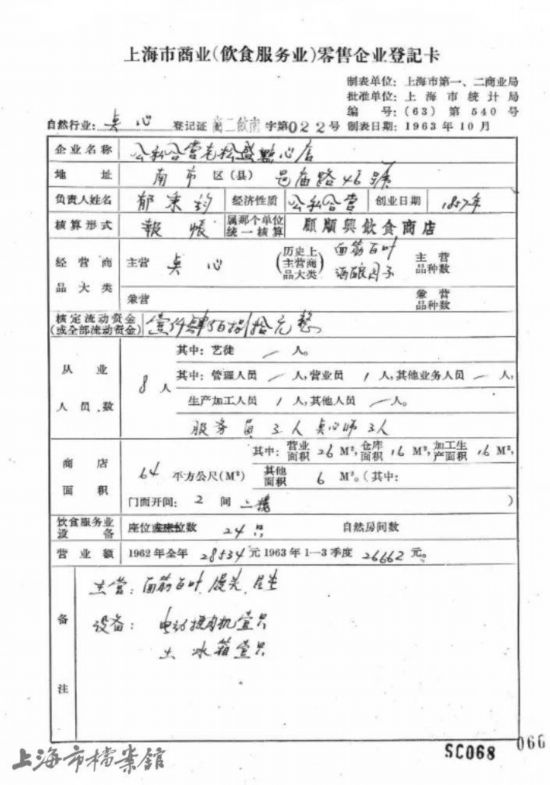 上海市商业(飲食服务业)零售企业登記卡
制表单位：上海市第一、二商业局
批准单位：上海市統計局
編号：(63)第540号
自然行业：点心 登记证 商二飲南 字第022号 制表日期：1963年10月
企业名称 公私合营老松盛點心店
地址 南市区(县) 邑庙路46號
负责人姓名 郁秉鈞 经济性质 公私合营 创业日期 1857年
核算形式 報帳 属那个单位統一核算 顧順興飲食商店
经营商品大类 主营 点心 (历史上主营商品大类) 面筋百叶 酒酿圆子 主营品种数
兼营 兼营品种数
核定流动资金(或全部流动资金) 壹仟肆佰捌拾元整
从业人员数 8人
其中：艺徒 / 人。
其中：管理人员 / 人，营业员 1 人，其他业务人员 / 人，
生产加工人员 1 人，其他人员 / 人。
服务員 3人 点心师 3人
商店面积 64 不方公尺(M²)
其中：营业面积 26 M²，仓库面积 16 M²，加工生产面积 16 M²，
其他面积 6 M²。(其中：
门面开间：2 间 二楼 )
饮食服务业设备 座位或座位数 24只 自然房间数
营业额 1962年全年 28534元 1963年1—3季度 26662元。
备注
主营：面筋百叶 馒头
设备：电动绞肉机壹只
土冰箱壹只
上海市檔案館
SC068
066